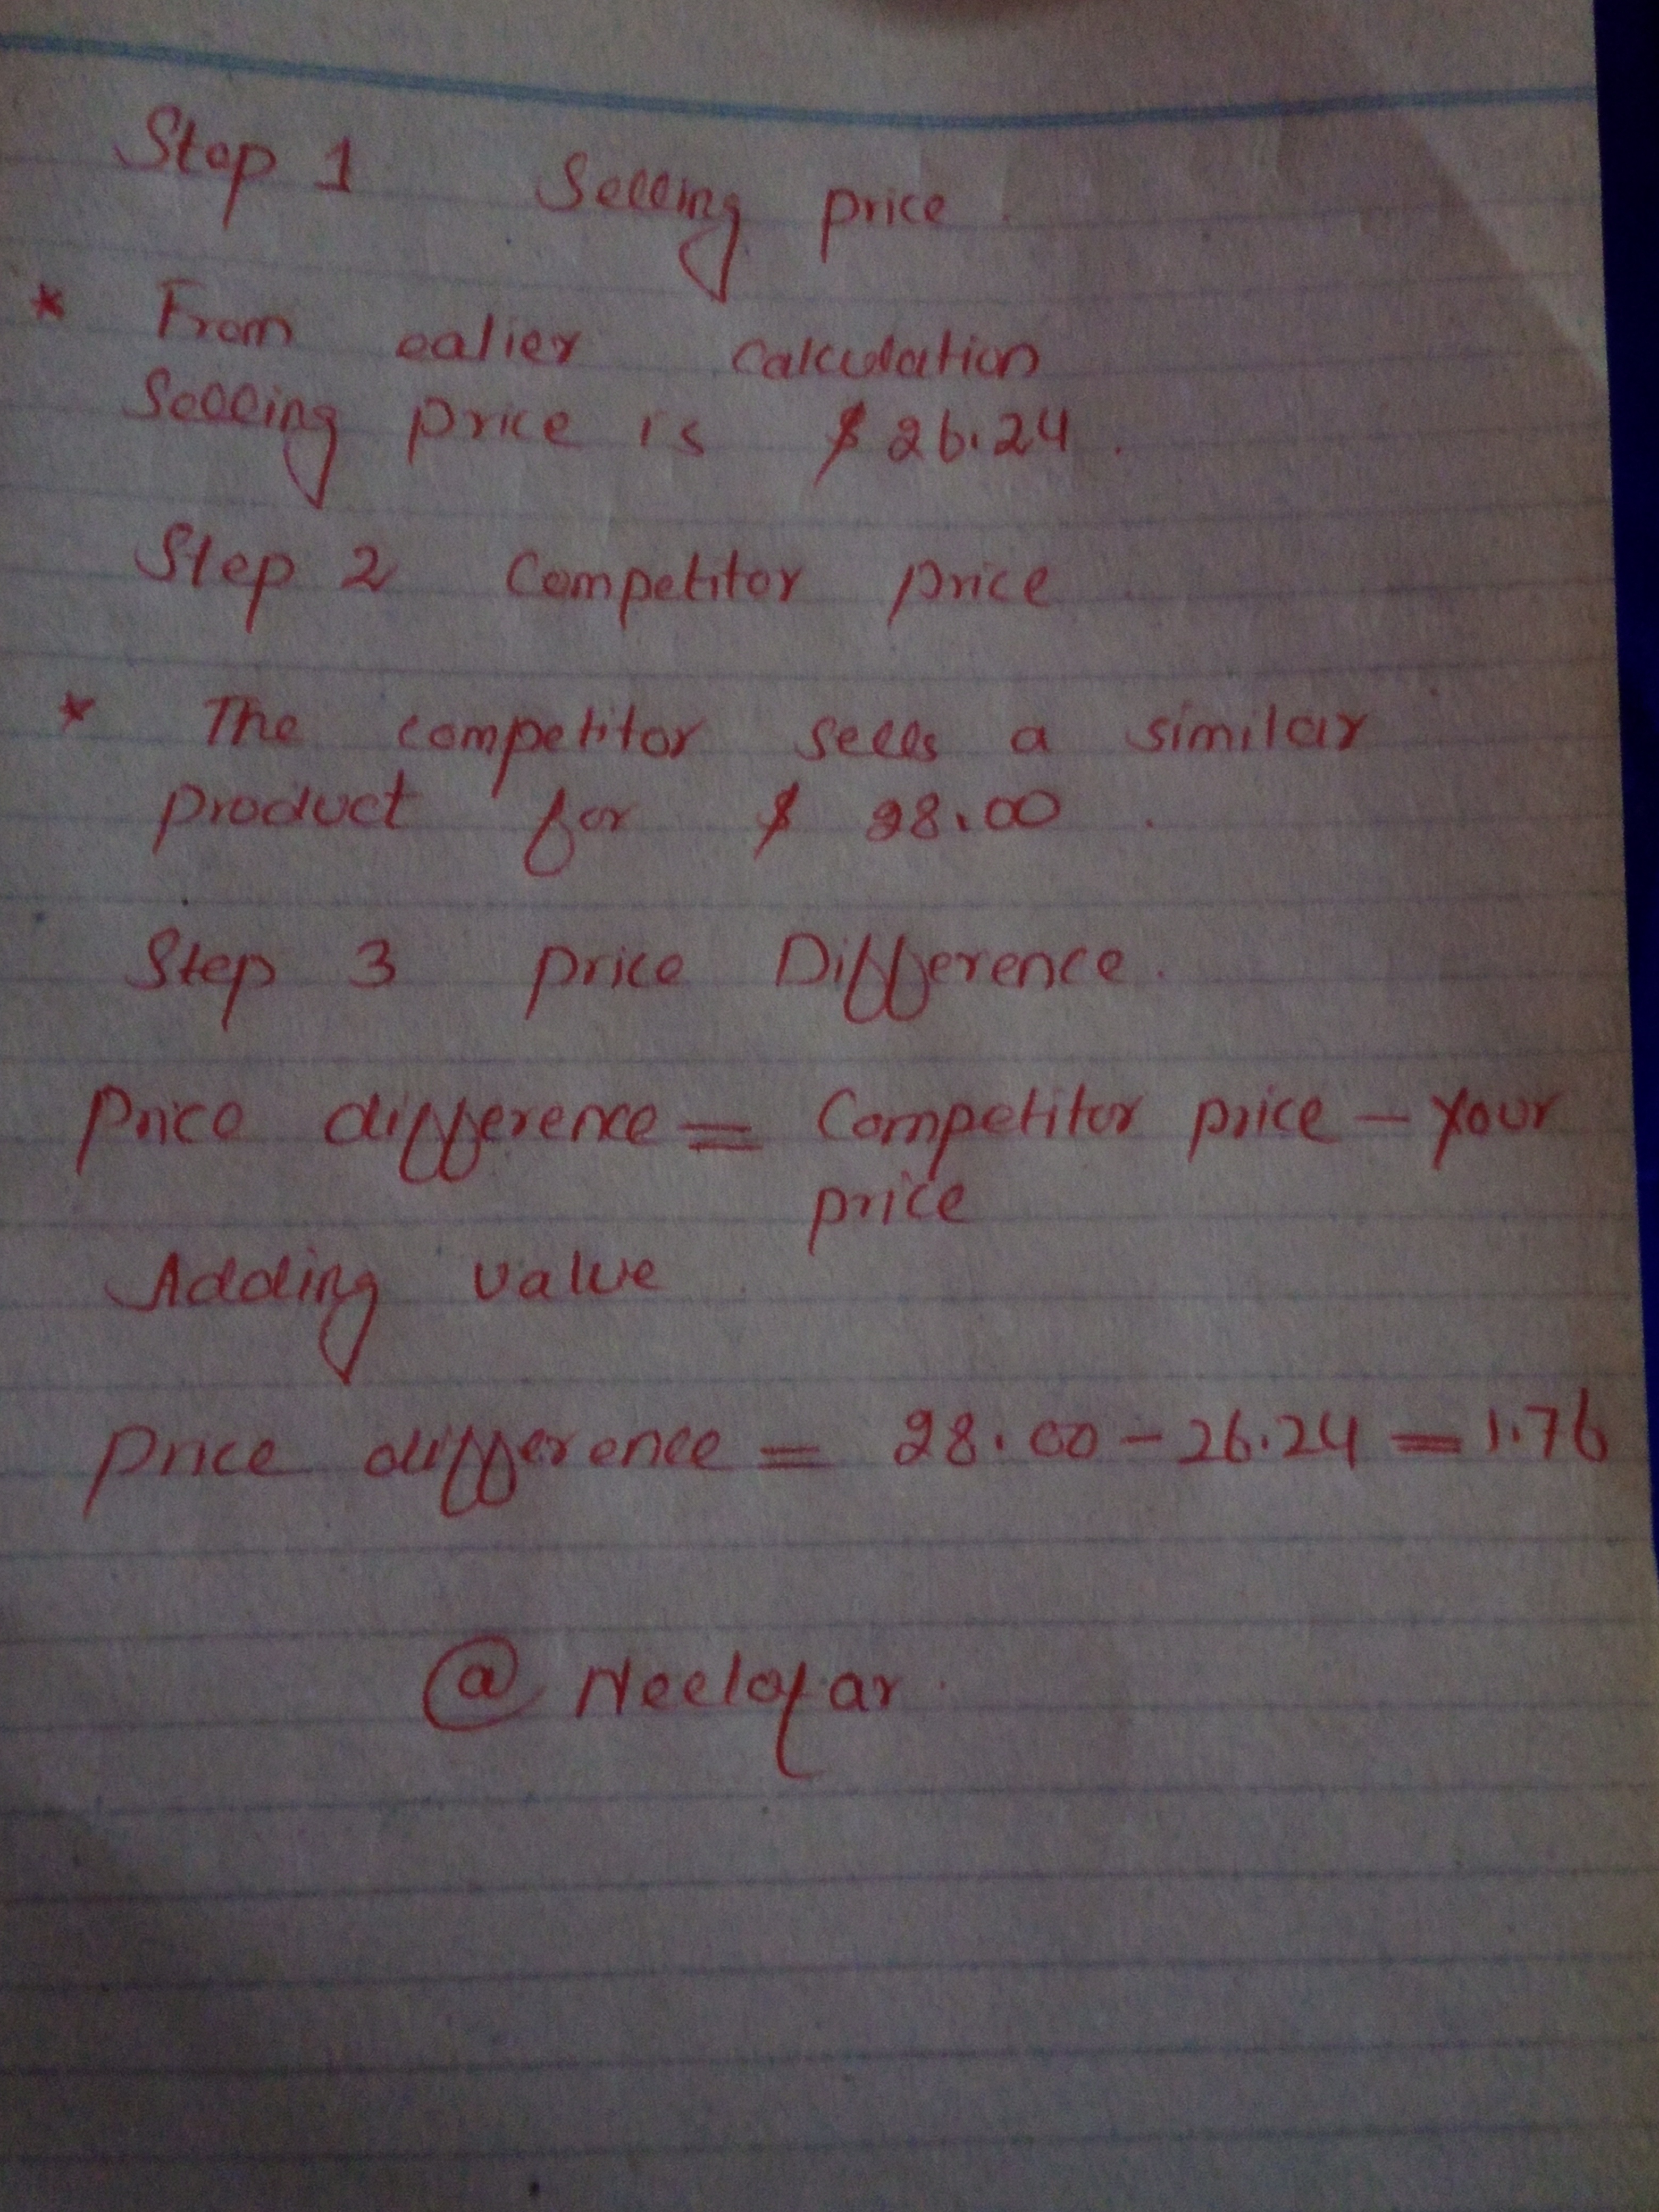 Step 1 Selling price
* From ealier calculation
Selling price is $26.24.
Step 2 Competitor price
* The competitor sells a similar
product for $ 28.00.
Step 3 price Difference.
Price difference = Competitor price - your
price
Adding value
Price difference = 28.00 - 26.24 = 1.76
@ Neelofar.